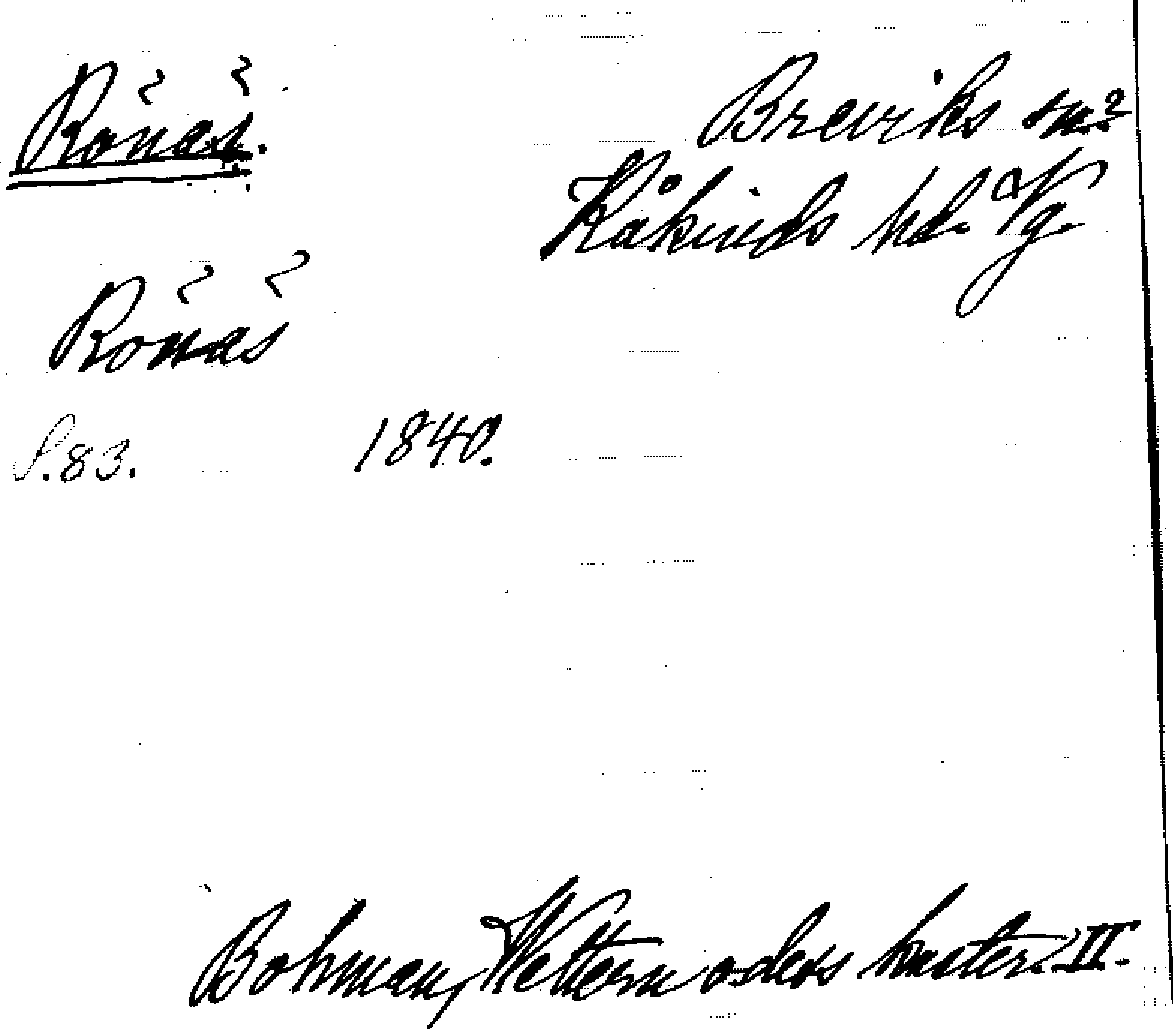 Rönäs.
Breviks sn?
Kåkinds hd. Vg.
Rönäs
S. 83. 1840.
Bohman, Wettern o. dess kuster. II.